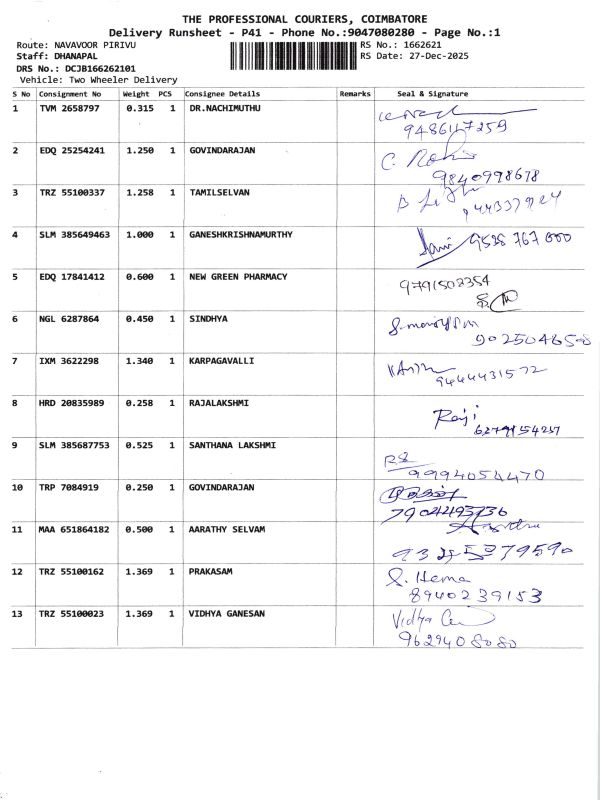 THE PROFESSIONAL COURIERS, COIMBATORE
Delivery Runsheet - P41 - Phone No.:9047080280 - Page No.:1
Route: NAVAVOOR PIRIVU RS No.: 1662621
Staff: DHANAPAL RS Date: 27-Dec-2025
DRS No.: DCJB166262101
Vehicle: Two Wheeler Delivery
S No Consignment No Weight PCS Consignee Details Remarks Seal & Signature
1 TVM 2658797 0.315 1 DR.NACHIMUTHU
9486147259
2 EDQ 25254241 1.250 1 GOVINDARAJAN
9840998678
3 TRZ 55100337 1.258 1 TAMILSELVAN
4 SLM 385649463 1.000 1 GANESHKRISHNAMURTHY
5 EDQ 17841412 0.600 1 NEW GREEN PHARMACY 9791502354
6 NGL 6287864 0.450 1 SINDHYA
7 IXM 3622298 1.340 1 KARPAGAVALLI
9444431572
8 HRD 20835989 0.258 1 RAJALAKSHMI Raji
9 SLM 385687753 0.525 1 SANTHANA LAKSHMI
9994054470
10 TRP 7084919 0.250 1 GOVINDARAJAN
7904493736
11 MAA 651864182 0.500 1 AARATHY SELVAM
12 TRZ 55100162 1.369 1 PRAKASAM S. Hema
8940239153
13 TRZ 55100023 1.369 1 VIDHYA GANESAN Vidhya
9629408080